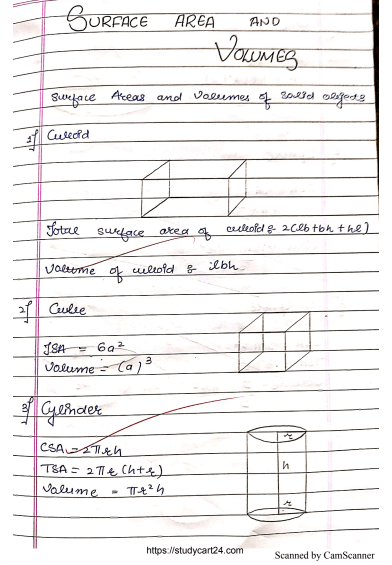 SURFACE AREA AND
VOLUMES
Surface Areas and Volumes of solid objects
1) Cuboid
Total surface area of cuboid : 2(lb+bh+hl)
Volume of cuboid : lbh
2) Cube
TSA = 6a²
Volume = (a)³
3) Cylinder
CSA = 2πrh
TSA = 2πr(h+r)
Volume = πr²h
r
h
r
https://studycart24.com
Scanned by CamScanner